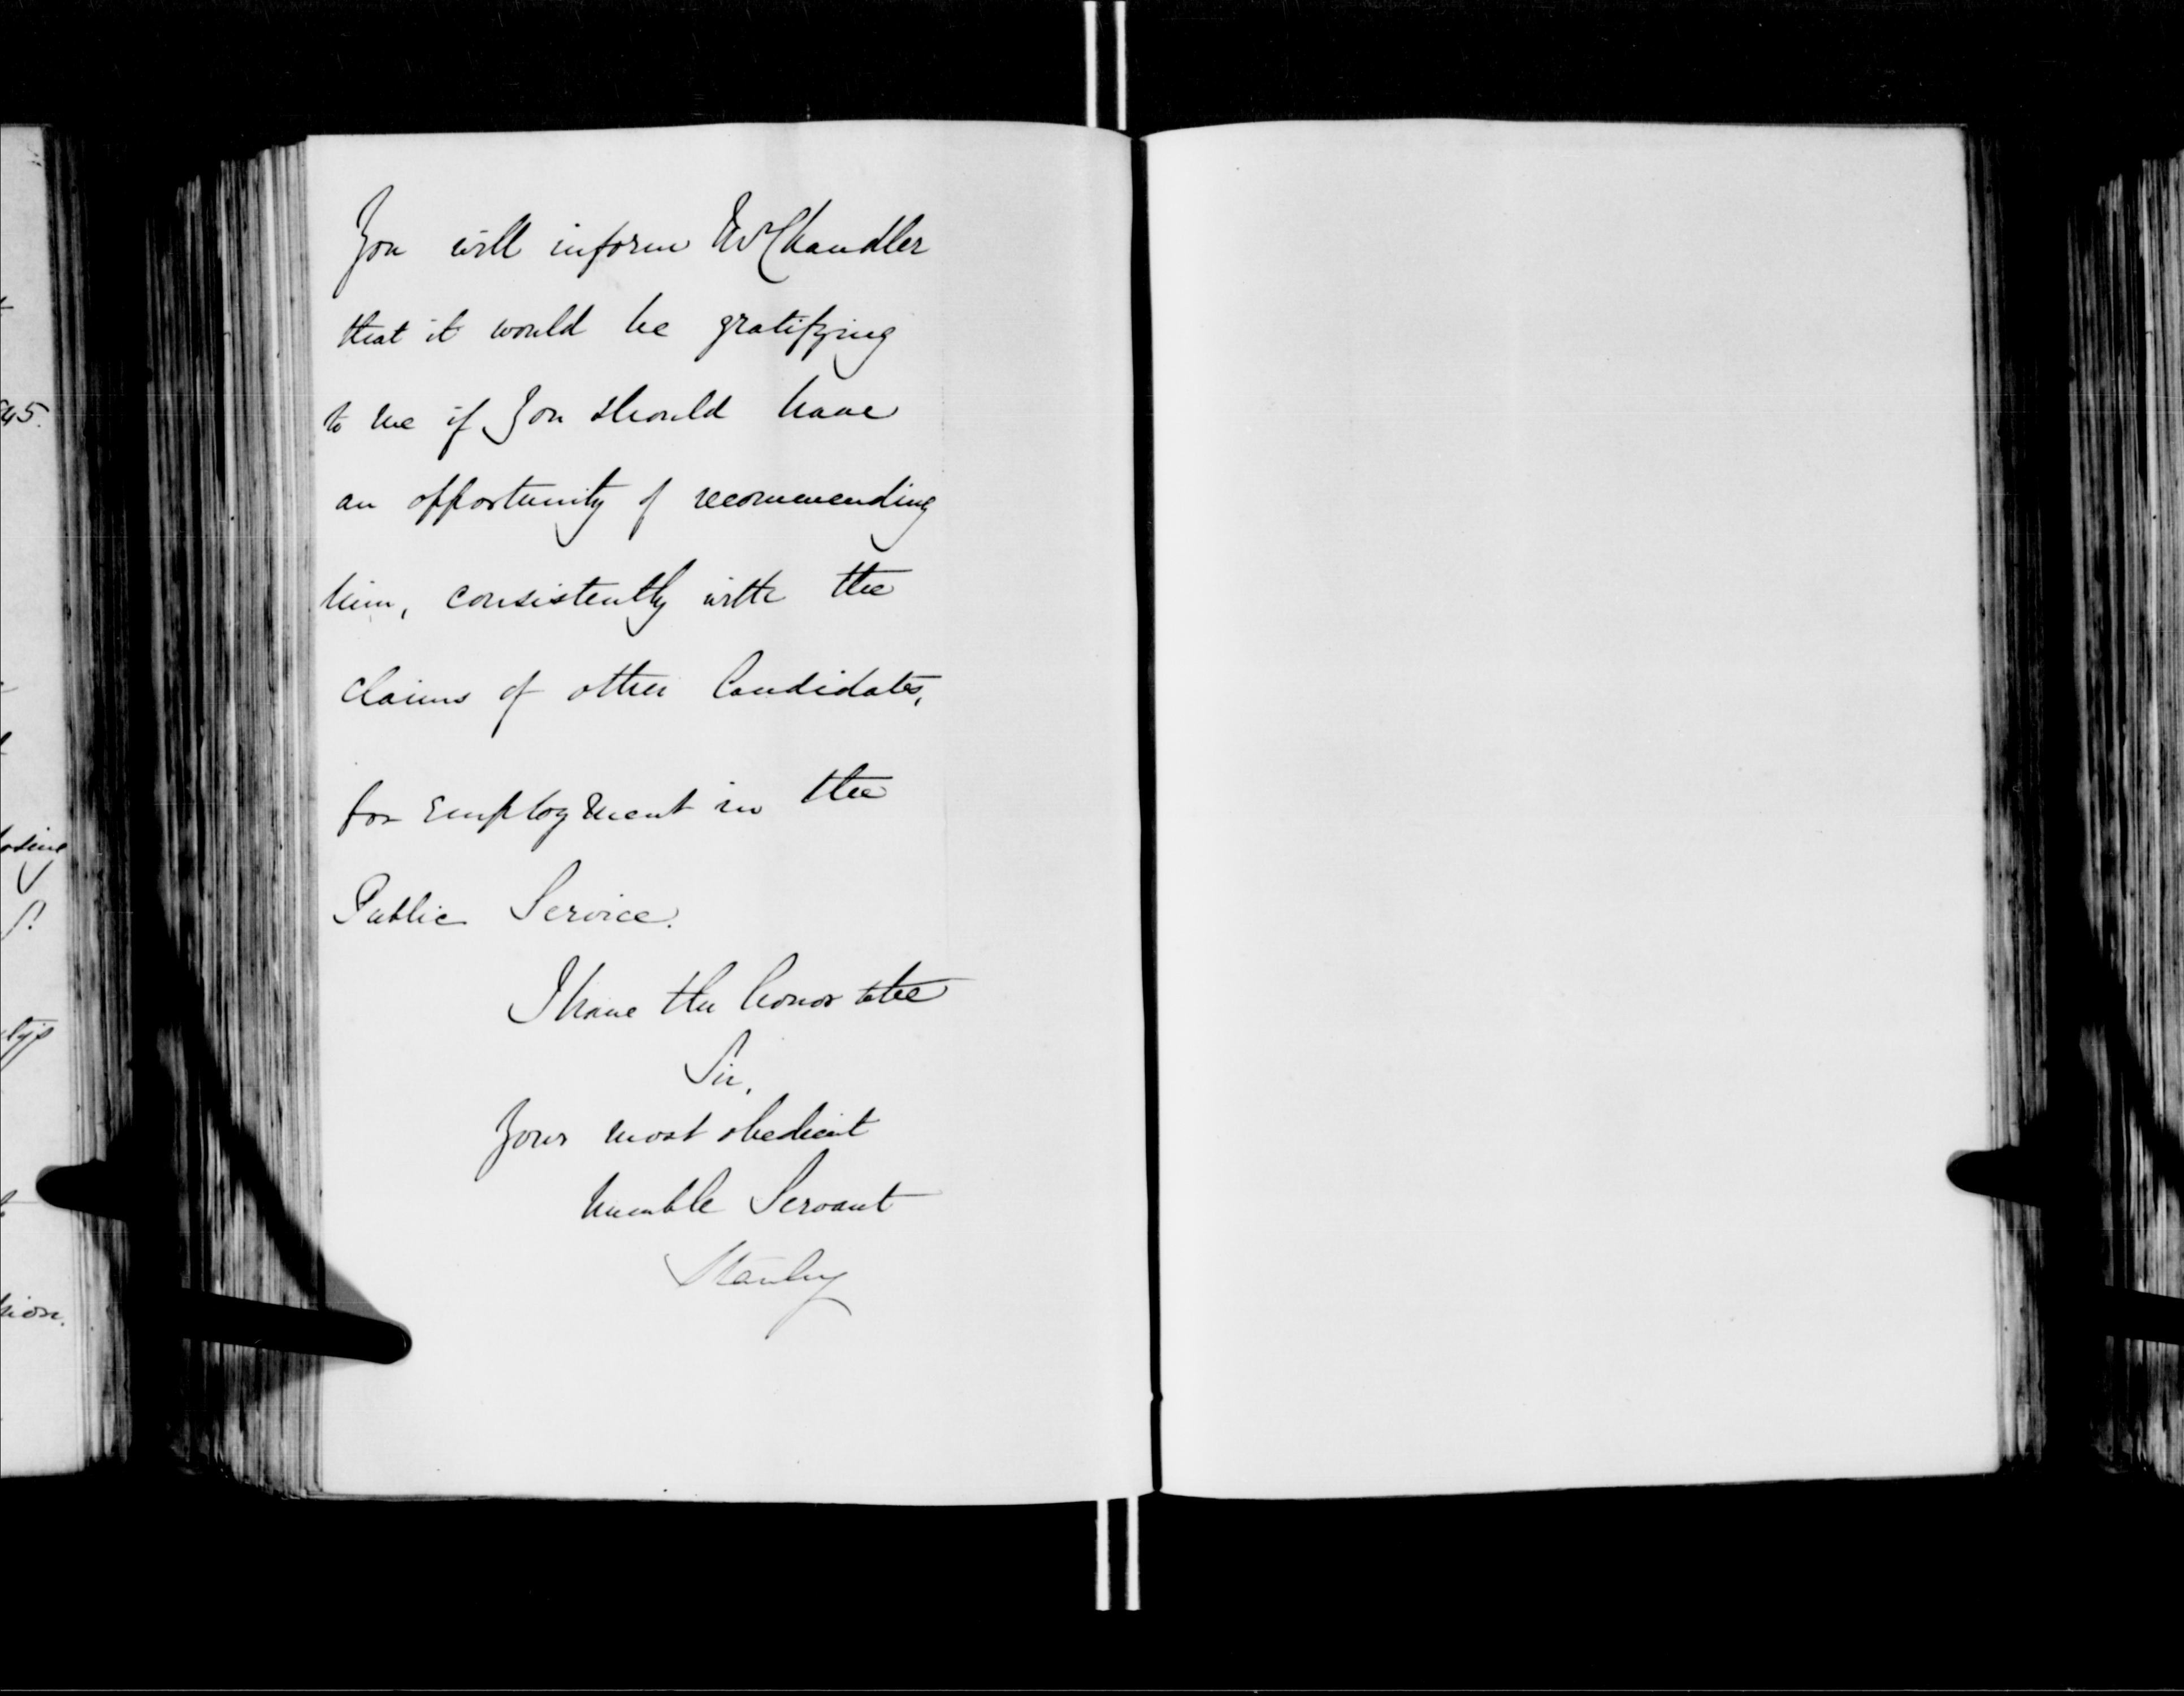 You will inform Mr Chandler
that it would be gratifying
to me if you should have
an opportunity of recommending
him, consistently with the
claims of other Candidates,
for employment in the
Public Service.
I have the honor to be
Sir,
Your most obedient
humble Servant
Stanley